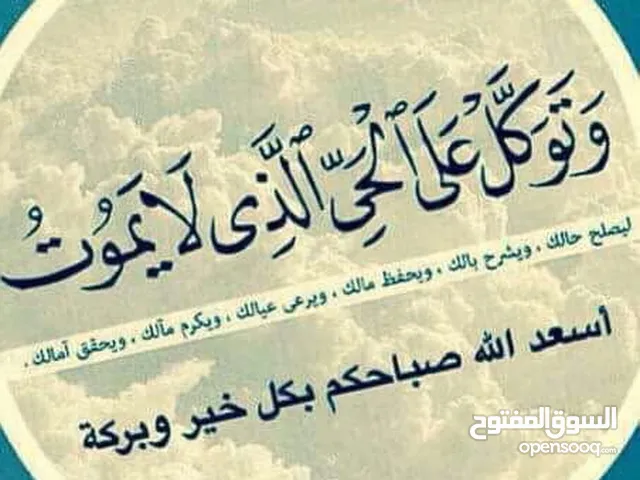 وَتَوَكَّلْ عَلَى ٱلْحَيِّ ٱلَّذِى لَا يَمُوتُ
ليصلح حالك ، ويشرح بالك ، ويحفظ مالك ، ويرعى عيالك ، ويكرم مآلك ، ويحقق آمالك .
أسعد الله صباحكم بكل خير وبركة
السوق المفتوح
opensooq.com